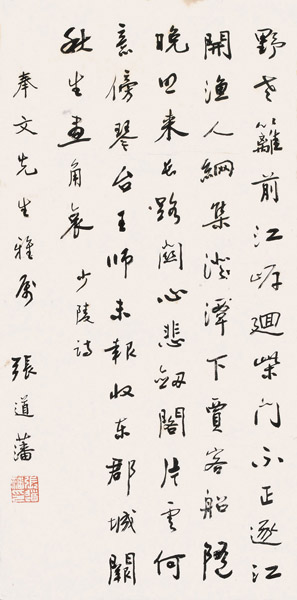 野老籬前江岸迴柴門不正逐江
開漁人網集澄潭下賈客船隨
晚照來長路關心悲劍閣片雲何
意傍琴台王師未報收東郡城闕
秋生畫角哀 少陵詩
奉文先生雅屬 張道藩